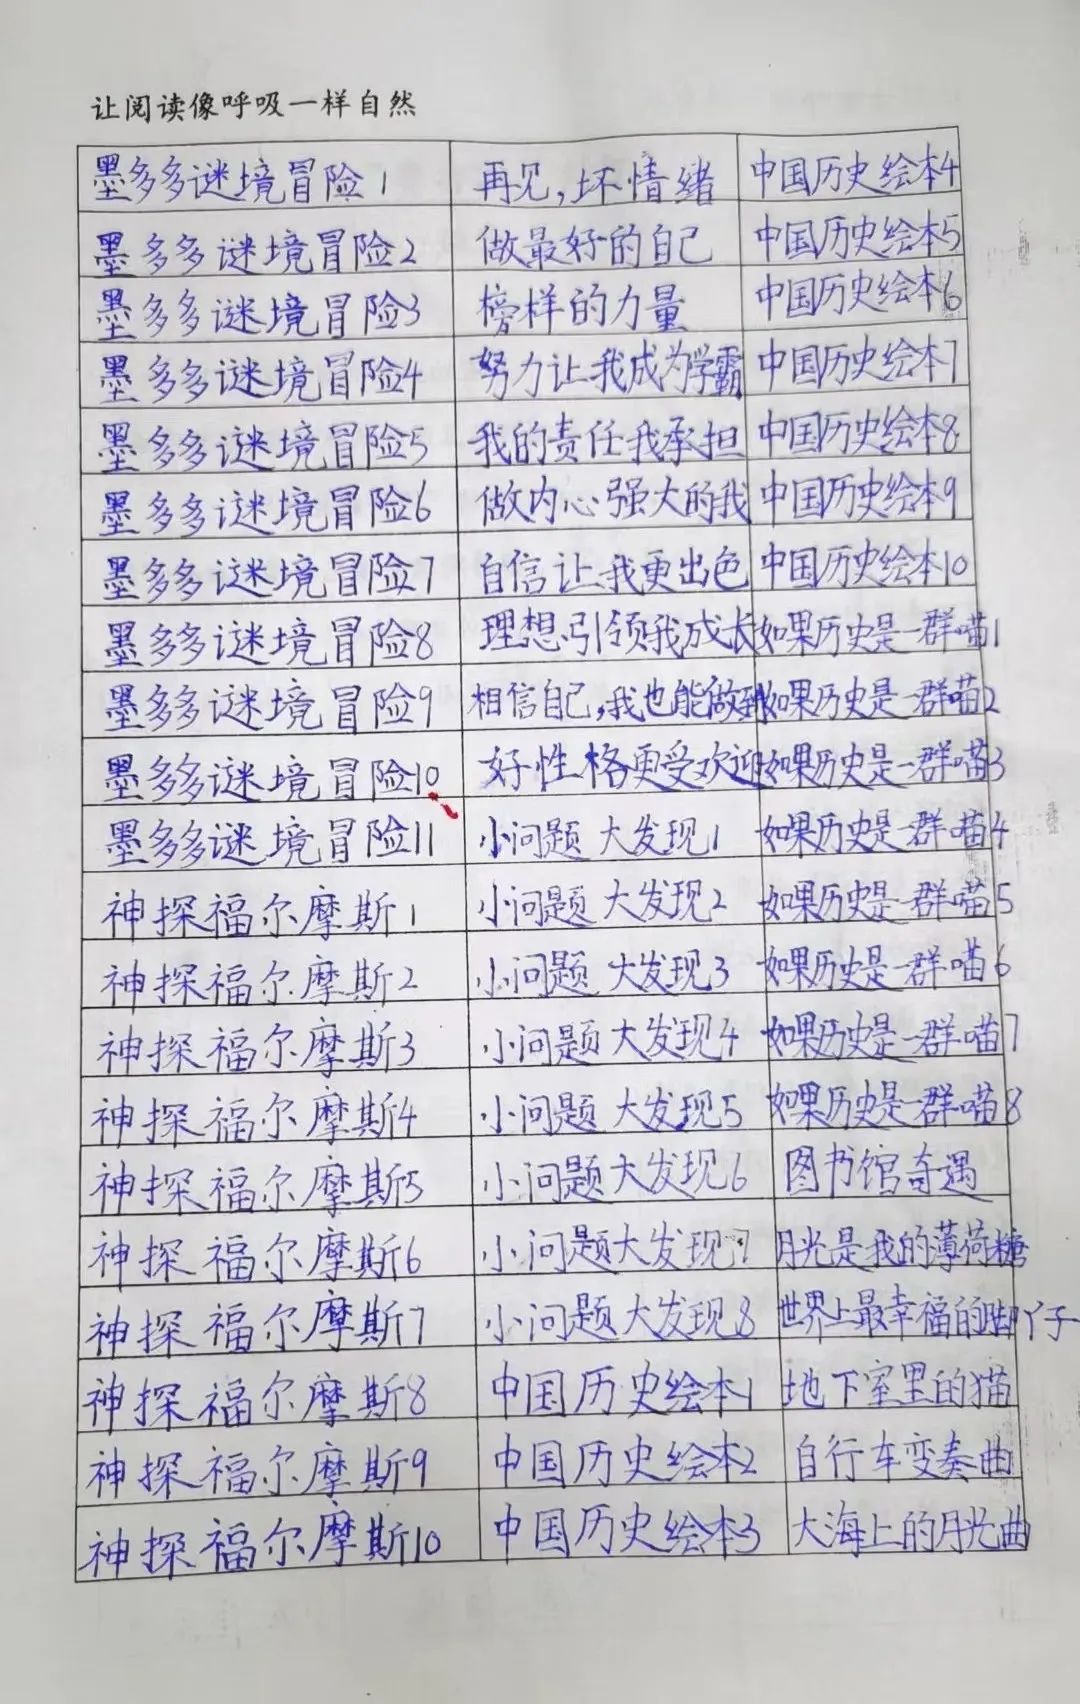 让阅读像呼吸一样自然
墨多多谜境冒险1 再见,坏情绪 中国历史绘本4
墨多多谜境冒险2 做最好的自己 中国历史绘本5
墨多多谜境冒险3 榜样的力量 中国历史绘本6
墨多多谜境冒险4 努力让我成为学霸 中国历史绘本7
墨多多谜境冒险5 我的责任我承担 中国历史绘本8
墨多多谜境冒险6 做内心强大的我 中国历史绘本9
墨多多谜境冒险7 自信让我更出色 中国历史绘本10
墨多多谜境冒险8 理想引领我成长 如果历史是一群喵1
墨多多谜境冒险9 相信自己,我也能做到 如果历史是一群喵2
墨多多谜境冒险10 好性格更受欢迎 如果历史是一群喵3
墨多多谜境冒险11 小问题大发现1 如果历史是一群喵4
神探福尔摩斯1 小问题大发现2 如果历史是一群喵5
神探福尔摩斯2 小问题大发现3 如果历史是一群喵6
神探福尔摩斯3 小问题大发现4 如果历史是一群喵7
神探福尔摩斯4 小问题大发现5 如果历史是一群喵8
神探福尔摩斯5 小问题大发现6 图书馆奇遇
神探福尔摩斯6 小问题大发现7 月光是我的薄荷糖
神探福尔摩斯7 小问题大发现8 世界上最幸福的脚丫子
神探福尔摩斯8 中国历史绘本1 地下室里的猫
神探福尔摩斯9 中国历史绘本2 自行车变奏曲
神探福尔摩斯10 中国历史绘本3 大海上的月光曲